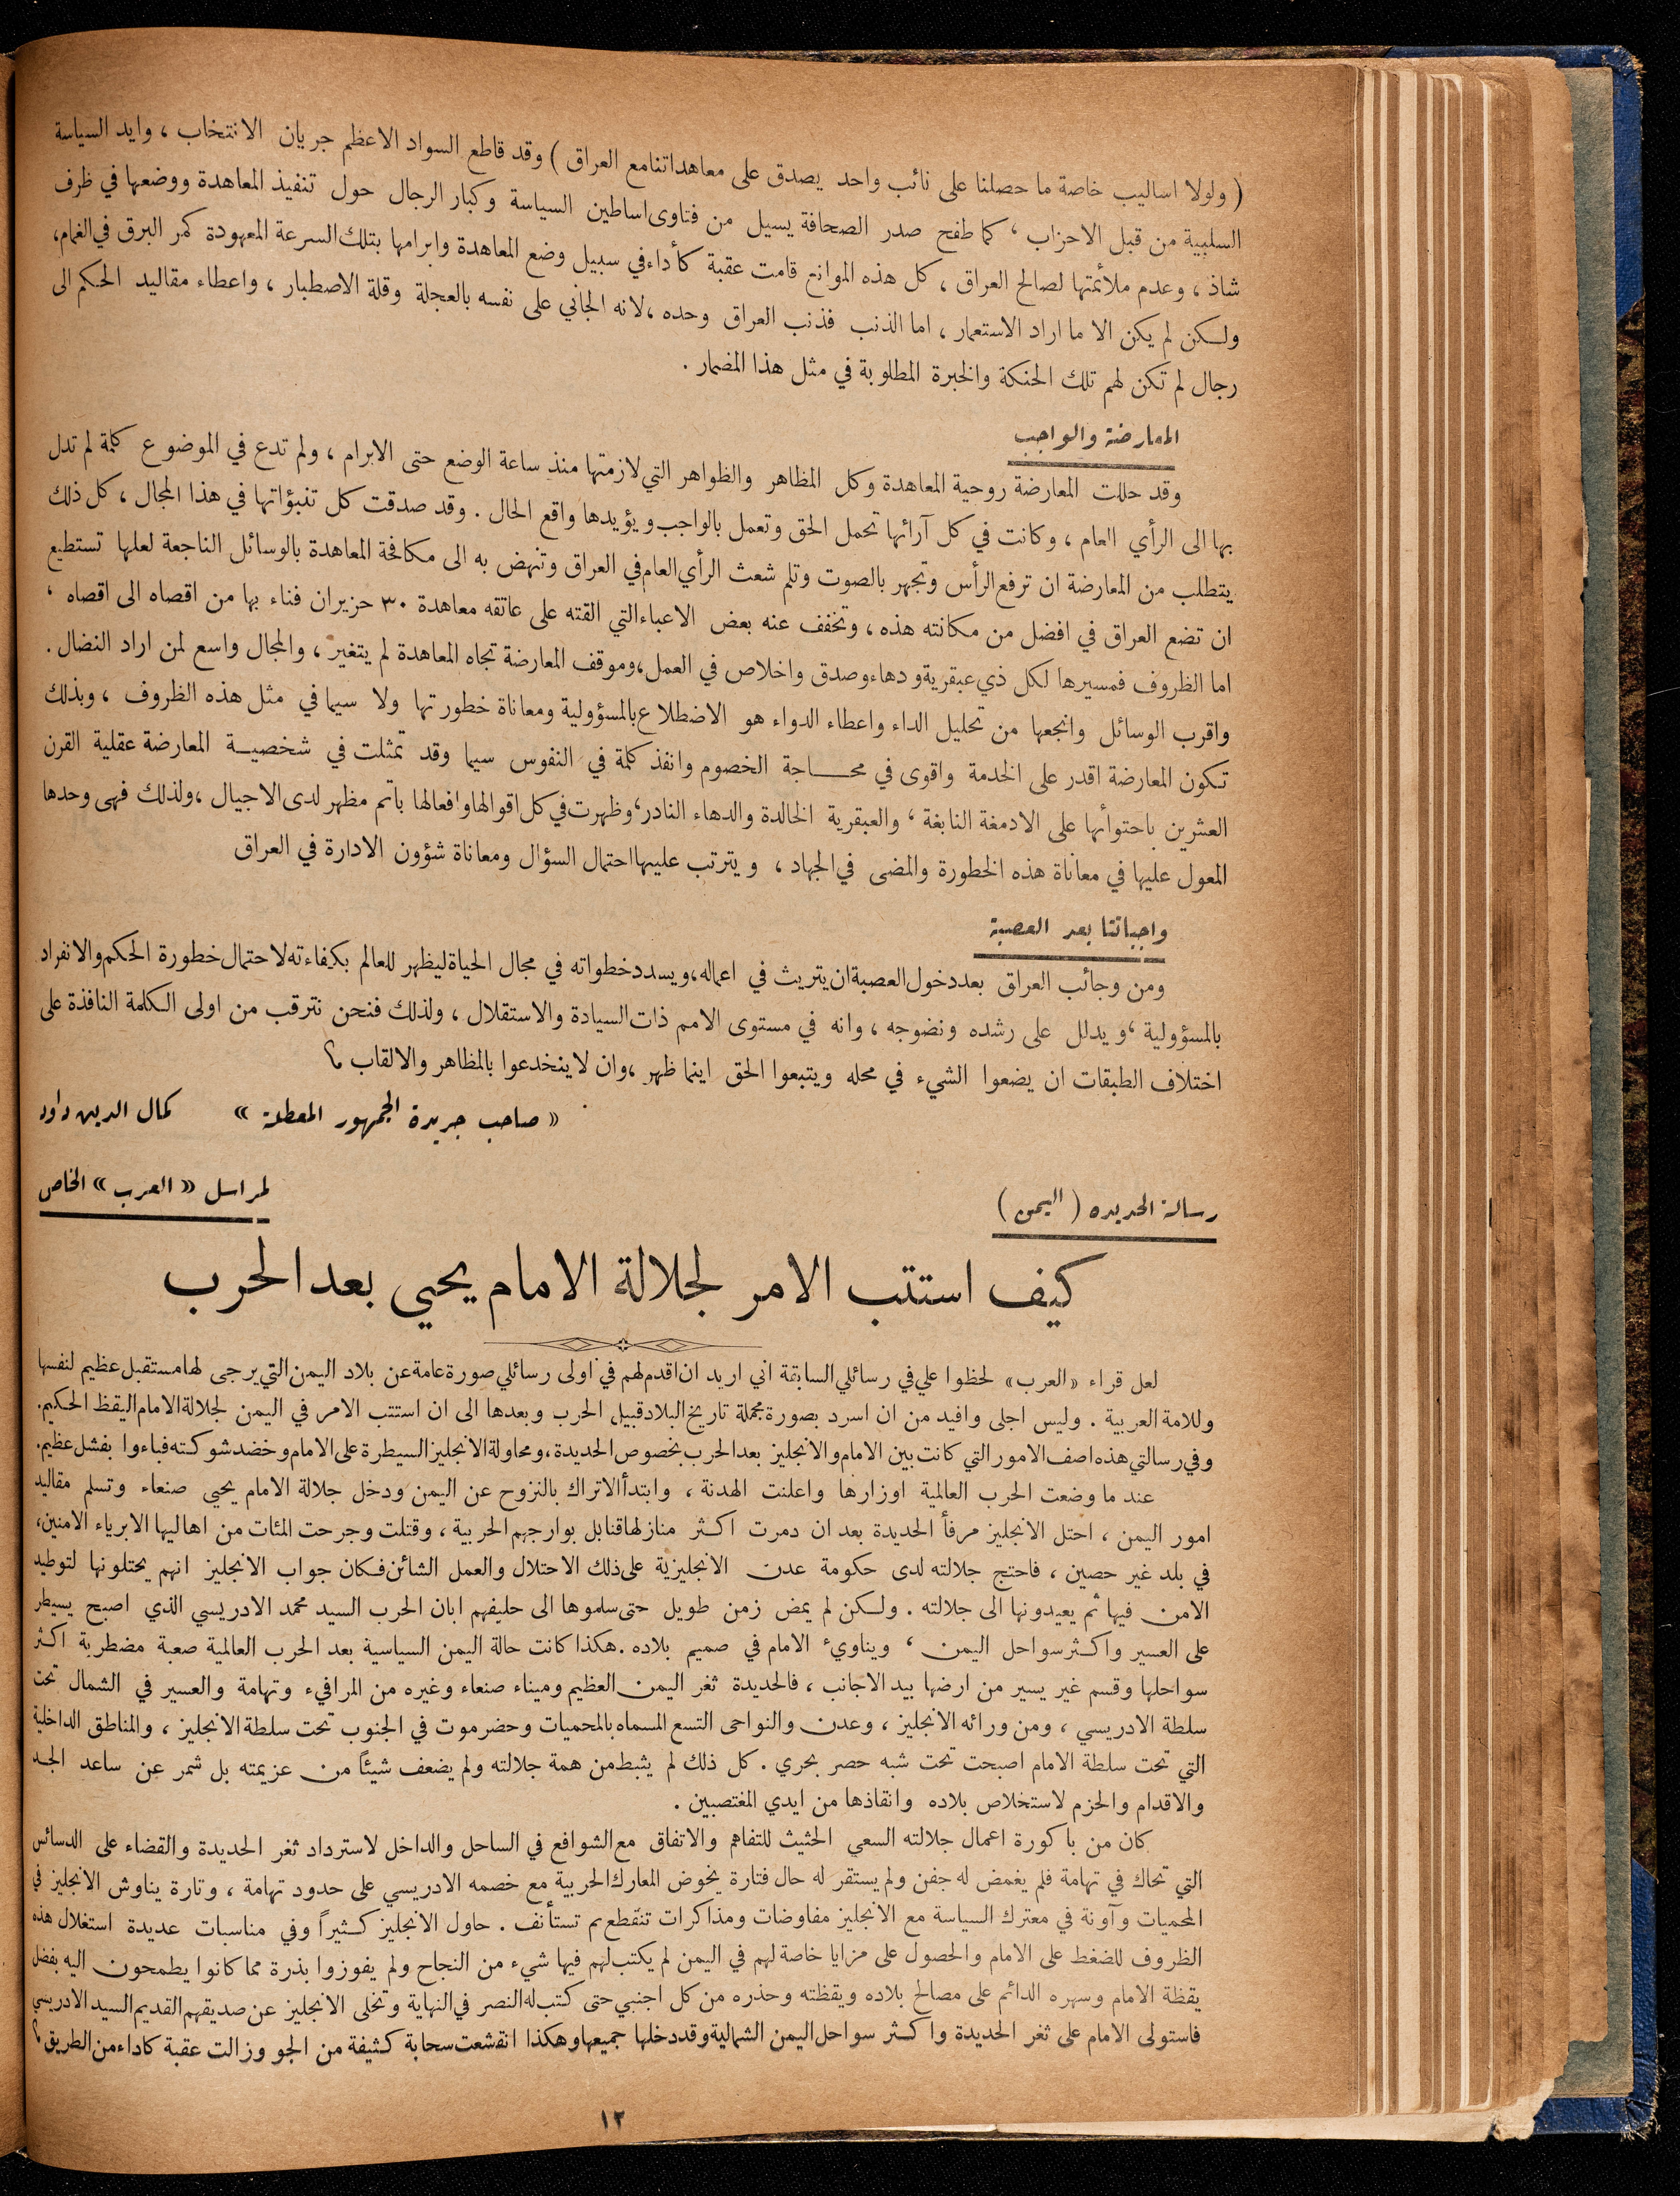 ( ولولا اساليب خاصة ما حصلنا على نائب واحد يصدق على معاهداتنامع العراق ) وقد قاطع السواد الاعظم جريان الانتخاب ، وايد السياسة
السلبية من قبل الاحزاب ، كما طفح صدر الصحافة يسيل من فتاوى اساطين السياسة وكبار الرجال حول تنفيذ المعاهدة ووضعها في ظرف
شاذ ، وعدم ملائمتها لصالح العراق ، كل هذه الموانع قامت عقبة كأداء في سبيل وضع المعاهدة وابرامها بتلك السرعة المعهودة كمر البرق في الغمام،
ولكن لم يكن الا ما اراد الاستعمار ، اما الذنب فذنب العراق وحده ، لانه الجاني على نفسه بالعجلة وقلة الاصطبار ، واعطاء مقاليد الحكم الى
رجال لم تكن لهم تلك الحنكة والخبرة المطلوبة في مثل هذا المضمار .
المعارضة والواجب
وقد حللت المعارضة روحية المعاهدة وكل المظاهر والظواهر التي لازمتها منذ ساعة الوضع حتى الابرام ، ولم تدع في الموضوع كلمة لم تدل
بها الى الرأي العام ، وكانت في كل آرائها تحمل الحق وتعمل بالواجب ويؤيدها واقع الحال . وقد صدقت كل تنبؤاتها في هذا المجال ، كل ذلك
يتطلب من المعارضة ان ترفع الرأس وتجهر بالصوت وتلم شعث الرأي العام في العراق وتنهض به الى مكافحة المعاهدة بالوسائل الناجعة لعلها تستطيع
ان تضع العراق في افضل من مكانته هذه ، وتخفف عنه بعض الاعباء التي القته على عاتقه معاهدة ٣٠ حزيران فناء بها من اقصاه الى اقصاه ،
اما الظروف فمسيرها لكل ذي عبقرية ودهاء وصدق واخلاص في العمل، وموقف المعارضة تجاه المعاهدة لم يتغير ، والمجال واسع لمن اراد النضال .
واقرب الوسائل وانجعها من تحليل الداء واعطاء الدواء هو الاضطلاع بالمسؤولية ومعاناة خطورتها ولا سيما في مثل هذه الظروف ، وبذلك
تكون المعارضة اقدر على الخدمة واقوى في محاجة الخصوم وانفذ كلمة في النفوس سيما وقد تمثلت في شخصية المعارضة عقلية القرن
العشرين باحتوائها على الادمغة النابغة ، والعبقرية الخالدة والدهاء النادر، وظهرت في كل اقوالها وافعالها باتم مظهر لدى الاجيال ، ولذلك فهى وحدها
المعول عليها في معاناة هذه الخطورة والمضى في الجهاد ، ويترتب عليها احتمال السؤال ومعاناة شؤون الادارة في العراق
واجباتنا بعد العصبة
ومن وجائب العراق بعد دخول العصبة ان يتريث في اعماله، ويسدد خطواته في مجال الحياة ليظهر للعالم بكيفاءته لاحتمال خطورة الحكم والانفراد
بالمسؤولية ، ويدلل على رشده ونضوجه ، وانه في مستوى الامم ذات السيادة والاستقلال ، ولذلك فنحن نترقب من اولى الكلمة النافذة على
اختلاف الطبقات ان يضعوا الشيء في محله ويتبعوا الحق اينما ظهر ، وان لا ينخدعوا بالمظاهر والالقاب ؟
« صاحب جريدة الجمهور المعطلة » كمال الدين داود
رسالة الحديده ( اليمن ) لمراسل « العرب » الخاص
كيف استتب الامر لجلالة الامام يحيي بعد الحرب
لعل قراء « العرب » لحظوا علي في رسائلي السابقة اني اريد ان اقدم لهم في اولى رسائلي صورة عامة عن بلاد اليمن التي يرجى لها مستقبل عظيم لنفسها
وللامة العربية . وليس اجلى وافيد من ان اسرد بصورة مجملة تاريخ البلاد قبيل الحرب وبعدها الى ان استتب الامر في اليمن لجلالة الامام اليقظ الحكيم.
وفي رسالتي هذه اصف الامور التي كانت بين الامام والانجليز بعد الحرب بخصوص الحديدة، ومحاولة الانجليز السيطرة على الامام وخضد شوكته فباءوا بفشل عظيم.
عند ما وضعت الحرب العالمية اوزارها واعلنت الهدنة ، وابتدأ الاتراك بالنزوح عن اليمن ودخل جلالة الامام يحيى صنعاء وتسلم مقاليد
امور اليمن ، احتل الانجليز مرفأ الحديدة بعد ان دمرت اكثر منازلها قنابل بوارجهم الحربية ، وقتلت وجرحت المئات من اهاليها الابرياء الامنين،
في بلد غير حصين ، فاحتج جلالته لدى حكومة عدن الانجليزية على ذلك الاحتلال والعمل الشائن فكان جواب الانجليز انهم يحتلونها لتوطيد
الامن فيها ثم يعيدونها الى جلالته . ولكن لم يمض زمن طويل حتى سلموها الى حليفهم ابان الحرب السيد محمد الادريسي الذي اصبح يسيطر
على العسير واكثر سواحل اليمن ، ويناويء الامام في صميم بلاده . هكذا كانت حالة اليمن السياسية بعد الحرب العالمية صعبة مضطربة اكثر
سواحلها وقسم غير يسير من ارضها بيد الاجانب ، فالحديدة ثغر اليمن العظيم وميناء صنعاء وغيره من المرافيء وتهامة والعسير في الشمال تحت
سلطة الادريسي ، ومن ورائه الانجليز ، وعدن والنواحى التسع المسماه بالمحميات وحضرموت في الجنوب تحت سلطة الانجليز ، والمناطق الداخلية
التي تحت سلطة الامام اصبحت تحت شبه حصر بحري . كل ذلك لم يثبط من همة جلالته ولم يضعف شيئاً من عزيمته بل شمر عن ساعد الجد
والاقدام والحزم لاستخلاص بلاده وانقاذها من ايدي المغتصبين .
كان من باكورة اعمال جلالته السعي الحثيث للتفاهم والاتفاق مع الشوافع في الساحل والداخل لاسترداد ثغر الحديدة والقضاء على الدسائس
التي تحاك في تهامة فلم يغمض له جفن ولم يستقر له حال فتارة يخوض المعارك الحربية مع خصمه الادريسي على حدود تهامة ، وتارة يناوش الانجليز في
المحميات وآونة في معترك السياسة مع الانجليز مفاوضات ومذاكرات تنقطع ثم تستأنف . حاول الانجليز كثيراً وفي مناسبات عديدة استغلال هذه
الظروف للضغط على الامام والحصول على مزايا خاصة لهم في اليمن لم يكتب لهم فيها شيء من النجاح ولم يفوزوا بذرة مما كانوا يطمحون اليه بفضل
يقظة الامام وسهره الدائم على مصالح بلاده ويقظته وحذره من كل اجنبي حتى كتب له النصر في النهاية وتخلى الانجليز عن صديقهم القديم السيد الادريسي
فاستولى الامام على ثغر الحديدة واكثر سواحل اليمن الشمالية وقد دخلها جميعها وهكذا انقشعت سحابة كثيفة من الجو وزالت عقبة كاداء من الطريق ؟
١٢